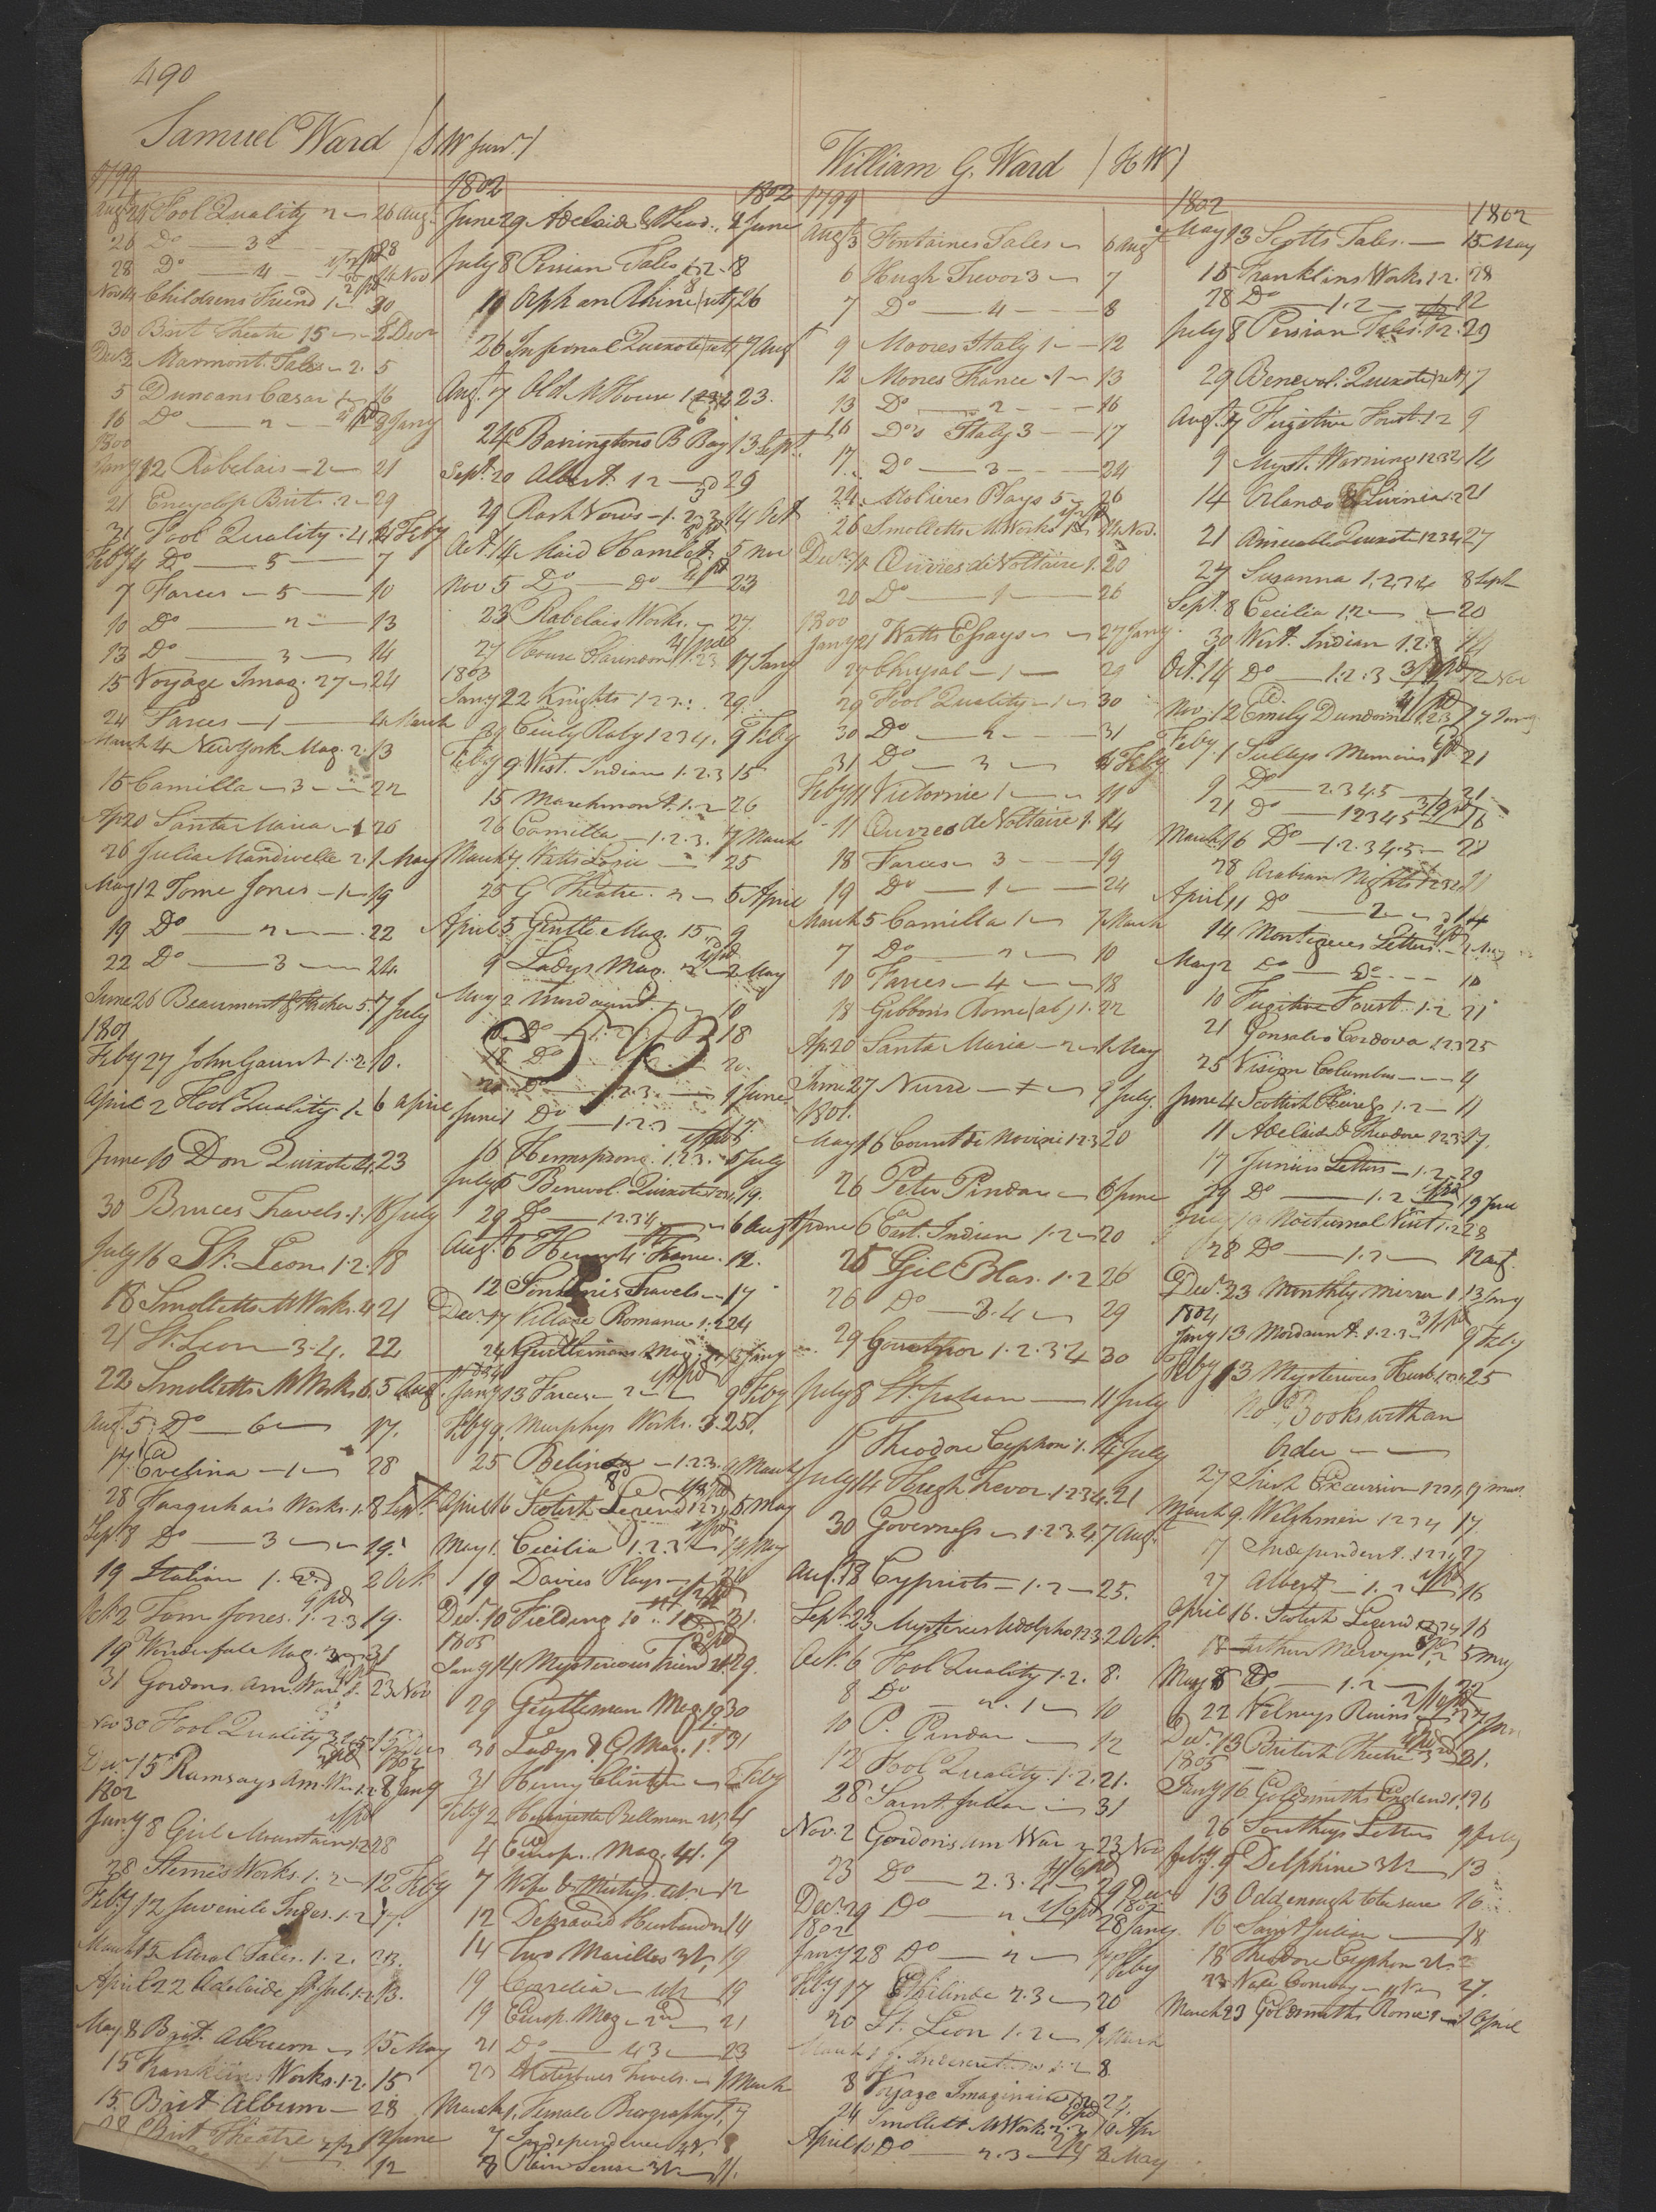 490
Samuel Ward / S W Junr. /
1799
Augt 24 Fool Quality 2 26 Augt
26 Do 3 28
28 Do 4 14 Nov
Nov 14 Childrens Friend 1 30
30 Brit Theatre 15 2 Decr
Decr 2 Marmont. Tales 2. 5
5 Duncans Cæsar 1 16
16 Do 2 3 Jany
1800
Jany 12 Rabelais 2 21
21 Encyclop Brit. 2 29
31 Fool Quality. 4 4 Feby
Feby 4 Do 5 7
7 Farces 5 10
10 Do 2 13
13 Do 3 14
15 Voyage Imag. 27 24
24 Farces 1 4 March
March 4 New York Mag. 2. 13
15 Camilla 3 22
Ap 20 Santa Maria 1 26
26 Julia Mandivelle 2. 1 May
May 12 Tome Jones 1 19
19 Do 2 22
22 Do 3 24
June 26 Beaumont & Flecher 5. 7 July
1801
Feby 27 John Gaunt 1.2 10.
April 2 Fool Quality. 1 6 April
June 10 Don Quixote 4. 23
30 Bruces Travels. 1. 18 July
July 16 St. Leon 1.2. 18
18 Smolletts M Works. 4 21
21 St. Leon 3.4. 22
22 Smolletts M Works 6. 5 Aug
Aug. 5 Do 6 17.
17 Evelina 1 28
28 Farquhars Works. 1. 8 Sept.
Sept. 8 Do 3 19.
19 Italian 1.2. 2 Oct.
Oct. 2 Tom Jones. 1.2.3 19.
19 Wonderfule Mag. 3 31
31 Gordons. Am. War 1. 23 Nov
Nov 30 Fool Quality 3.4.5 15 Dec
Decr. 15 Ramsays Am. War 1.2. 8 Jany
1802
Jany 8 Girl Mountain 1.2 28
28 Sternes Works. 1.2 12 Feby
Feby 12 Juvenile Indes. 1.2 17.
March 15 Moral Tales. 1.2. 23.
April 22 Adelaide St. Jul. 1.2 13.
May 8 Brit. Album 15 May
15 Franklins Works. 1.2. 15
15. Brit Album 28
28 Brit Theatre 12 June
12
1802 1802
June 29 Adelaide & Theod. 2 June
July 8 Persian Tales 1.2. 18
19 Orphan Rhine (sett) 26
26 Infernal Quixote (sett) 7 Augt
Aug. 7 Old M House 1.2.3.4 23.
24 Barringtons B Bay 13 Sept.
Sept. 20 Albert. 1 2 29
29 Rash Vows 1.2.3. 14 Oct
Oct. 14 Maid Hamlet. 5 Nov
Nov 5 Do Do 23
23 Rabelais Works. 27.
27 House Clarindon 1.2.3 17 Jany
1803
Jany 22 Knights 1 2 3. 29
29 Cicily Raby 1 2 3 4. 9 Feby
Feby 9. West. Indian 1.2.3 15
15 Marchmont. 1.2 26
26 Camilla 1.2.3. 7 March
March 7. Watts Logic 25
25 G Theatre. 2 5 April
April 5 Gentle Mag. 15. 9
9 Ladys Mag. 2 2 May
May 2 Mordaunt. 1 10
10 Do 1.2.3 18
18 Do 20.
20 Do 1.2.3. 1 June
June 1 Do 1.2.3 17.
16 Hermsprong. 1.2.3. 5 July
July 5 Benevol. Quixote 1 2 3 4 19.
29 Do 1 2 3 4 6 Augt
Aug. 6 Henry 4 France. 12.
12 Sonninis Travels 17
Decr. 17 Village Romance 1.2 24
24 Gentlemans Mag. 13 Jany
1804
Jany 13 Farces 2 9 Feby
Feby 9. Murphys Works. 3. 25.
25 Belinda 1.2.3. 9 March
April 16 Scotish Legend 1 2 3 4 5 May
May 1. Cecilia 1.2.3 19 May
19 Davies Plays
Decr. 10 Fielding 10 31.
1805
Jany 14 Mysterious Friend 29.
29 Gentleman Mag. 19 30
30 Ladys & G Mag. 1st 31
31 Henry Clinton 2 Feby
Feby 2 Henrietta Bellman 4
4 Europ. Mag. 41. 9
7 Wife & Mistress 12
12 Depraved Husband 14
14 Two Marillas 19
19 Cordelia 19
19 Europ. Mag 2d 21
21 Do 43 23
23 Kotzebues Travels. 1 March
March 1. Female Biography 1. 7
7 Independence 8
8 Plain Sense 11.
William G. Ward / H W /
1799
Augt 3 Fontaines Tales 6 Augt
6 Hugh Trevor 3 7
7 Do 4 8
9 Moores Italy 1 12
12 Moores France 1 13
13 Do 2 16
16 Dos Italy 3 17
17 Do 3 24
24 Molieres Plays 5 26
26 Smolletts M Works 1 24 Nov.
Decr. 14 Œuvres de Voltaire 1. 20
20 Do 1 26
1800
Jany 21 Watts Essays 27 Jany
27 Chrysal 1 29
29 Fool Quality 1 30
30 Do 2 31
31 Do 3 4 Feby
Feby 11 Victornie 1 11
11 Œuvres de Voltaire 1. 14
18 Farces 3 19
19 Do 1 24
March 5 Camilla 1 7 March
7 Do 2 10
10 Farces 4 18
18 Gibbons Rome (ab) 1. 22
Ap. 20 Santa Maria 2 1 May
June 27 Nurse 9 July.
1801.
May 16 Count di Novini 1.2.3 20
26 Peter Pindar 6 June
June 6 East. Indian 1.2 20
25 Gil Blas. 1.2 26
26 Do 3.4 29
29 Governor 1.2.3.4 30
July 8 St. Julian 11 July
11 Theodore Cyphon 1. 14 July
July 14 Hugh Trevor. 1.2.3.4. 21
30 Governess 1.2.3.4 7 Augt
Augt. 18 Cypriots 1.2 25.
Sept. 23 Mysteries Udolpho 1.2.3. 2 Oct.
Oct. 6 Fool Quality 1.2. 8.
8 Do 2.1 10
10 P. Pindar 12
12 Fool Quality. 1.2. 21.
28 Saint Julian 31
Nov. 2 Gordons Am War 2 23 Nov
23 Do 2.3.4 29 Decr
Decr. 29 Do 2 28 Jany.
1802
Jany 28 Do 2 Feby
Feby 17 Ethelinde 2.3 20
20 St. Leon 1.2 1 March
March 1 Indiscretions 1.2 8.
8 Voyage Imaginaire 24.
24 Smollett M Work. 2.3 10 Apr
April 10 Do 2.3.4 3 May
1802 1802
May 13 Scotts Tales. 15 May
15 Franklins Works 1.2. 28
28 Do 1.2 12
July 8 Persian Tales. 1.2. 29
29 Benevol. Quixote (sett) 7
Augt. 7 Fugitive Forst 1 2 9
9 Myst. Warning 1 2 3 4 14
14 Orlando & Livinia 1.2 21
21 Amicable Quixote 1 2 3 4 27
27 Susanna 1.2.3.4 8 Sept
Sept. 8 Cecilia 1.2 20
30 West. Indian 1.2.3 14
Oct. 14 Do 1.2.3 12 Nov
Nov. 12 Emily Dundorne 1.2.3 17 Jany
Feby. 1 Sullys Memoirs 1 21
9 Do 2.3.4.5 21
21 Do 1 2 3 4 5 16
March 16 Do 1.2.3.4.5. 28
28 Arabian Nights 1 2 3 4 11
April 11 Do 2 14
14 Montegues Letters. 2 May
May 2 Do Do 10
10 Fugitive Forst. 1.2 21
21 Gonsalvo Cordova 1.2.3 25
25 Vision Columbus 4
June 4 Scottish Chiefs 1.2 11
11 Adelaide & Theodore 1.2.3 17.
17 Junius Letters 1.2 29
29 Do 1.2 19 June
July 19 Nocturnal Visit 1.2 28
28 Do 1.2 12 Augt.
Decr. 23 Monthly Mirror 1 13 Jany
1804
Jany 13 Mordaunt. 1.2.3 9 Feby
Feby 13 Mysterious Husb. 1.2.3.4 25
No Books without an
Order
27 Irish Excursion 1 2 3 4 9 Mar.
March 9. Welshmen 1 2 3 4 17
17 Independent. 1.2 27
27 Albert 1.2 16
April 16. Scotish Legend 1 2 3 4 18
18 Arthur Mervyn 1.2 5 May
May 5 Do 1.2 22
22 Volneys Ruins
Decr. 13 British Theatre 31.
1805
Jany 16 Goldsmiths England 1. 26
26 Southeys Letters 9 Feby
Feby. 9 Delphine 13
13 Odd enough to be sure 16
16 Saint Julian 18
18 Theodore Cyphon
23 Nale Conway 27.
March 23 Goldsmiths Rome 2 1 April